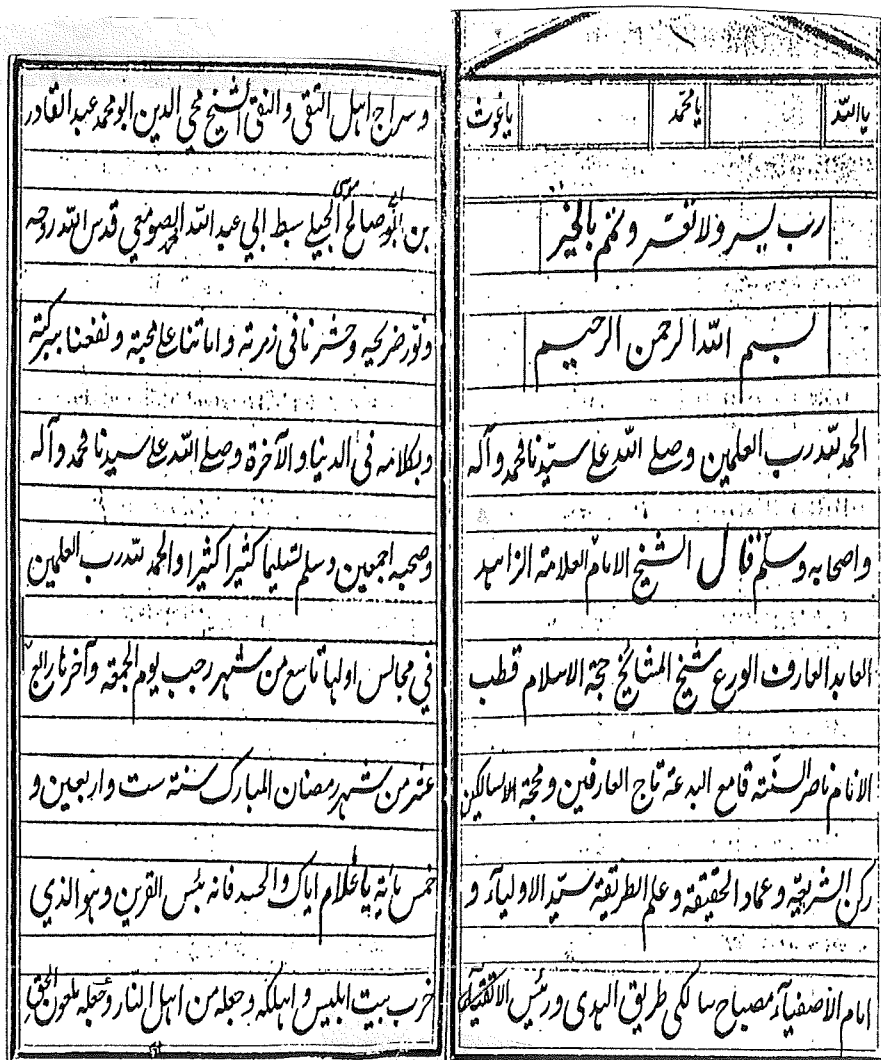 يا الله يا محمد يا غوث
رب يسر ولا تعسر وتمم بالخير
بسم الله الرحمن الرحيم
الحمد لله رب العلمين وصلے الله علے سيّدنا محمد وآله
واصحابه وسلّم قال الشيخ الامام العلامة الزاهد
العابد العارف الورع شيخ المشائخ حجة الاسلام قطب
الانام ناصر السنّته قامع البدعة تاج العارفين ومحجة السالكين
ركن الشريعيّة وعماد الحقيقة وعلم الطريقة سيّد الاولياء و
امام الاصفياء مصباح سالكى طريق الهدى ورئيس الاتقياء
وسراج اهل التقى والنقى الشيخ محي الدين ابو محمد عبد القادر
بن ابي صالح موسى الجيلے سبط ابي عبد الله محمد الصومعي قدس الله روحه
ونور ضريحيه وحشرنا فى زمرته واماتنا علے محبته ونفعنا ببركته
وبكلامه فى الدنيا والآخرة وصلے الله علے سيدنا محمد وآله
وصحبه اجمعين وسلم تسليما كثيرا كثيرا والحمد لله رب العلمين
في مجالس اولها تاسع من شهر رجب يوم الجمعة وآخرها رابع
عشر من شهر رمضان المبارك سنة ست واربعين و
خمس مأئة يا غلام اياك والحسد فانه بئس القرين وهو الذي
خرب بيت ابليس واهلكه وجعله من اهل النار وجعله ملعون الحق